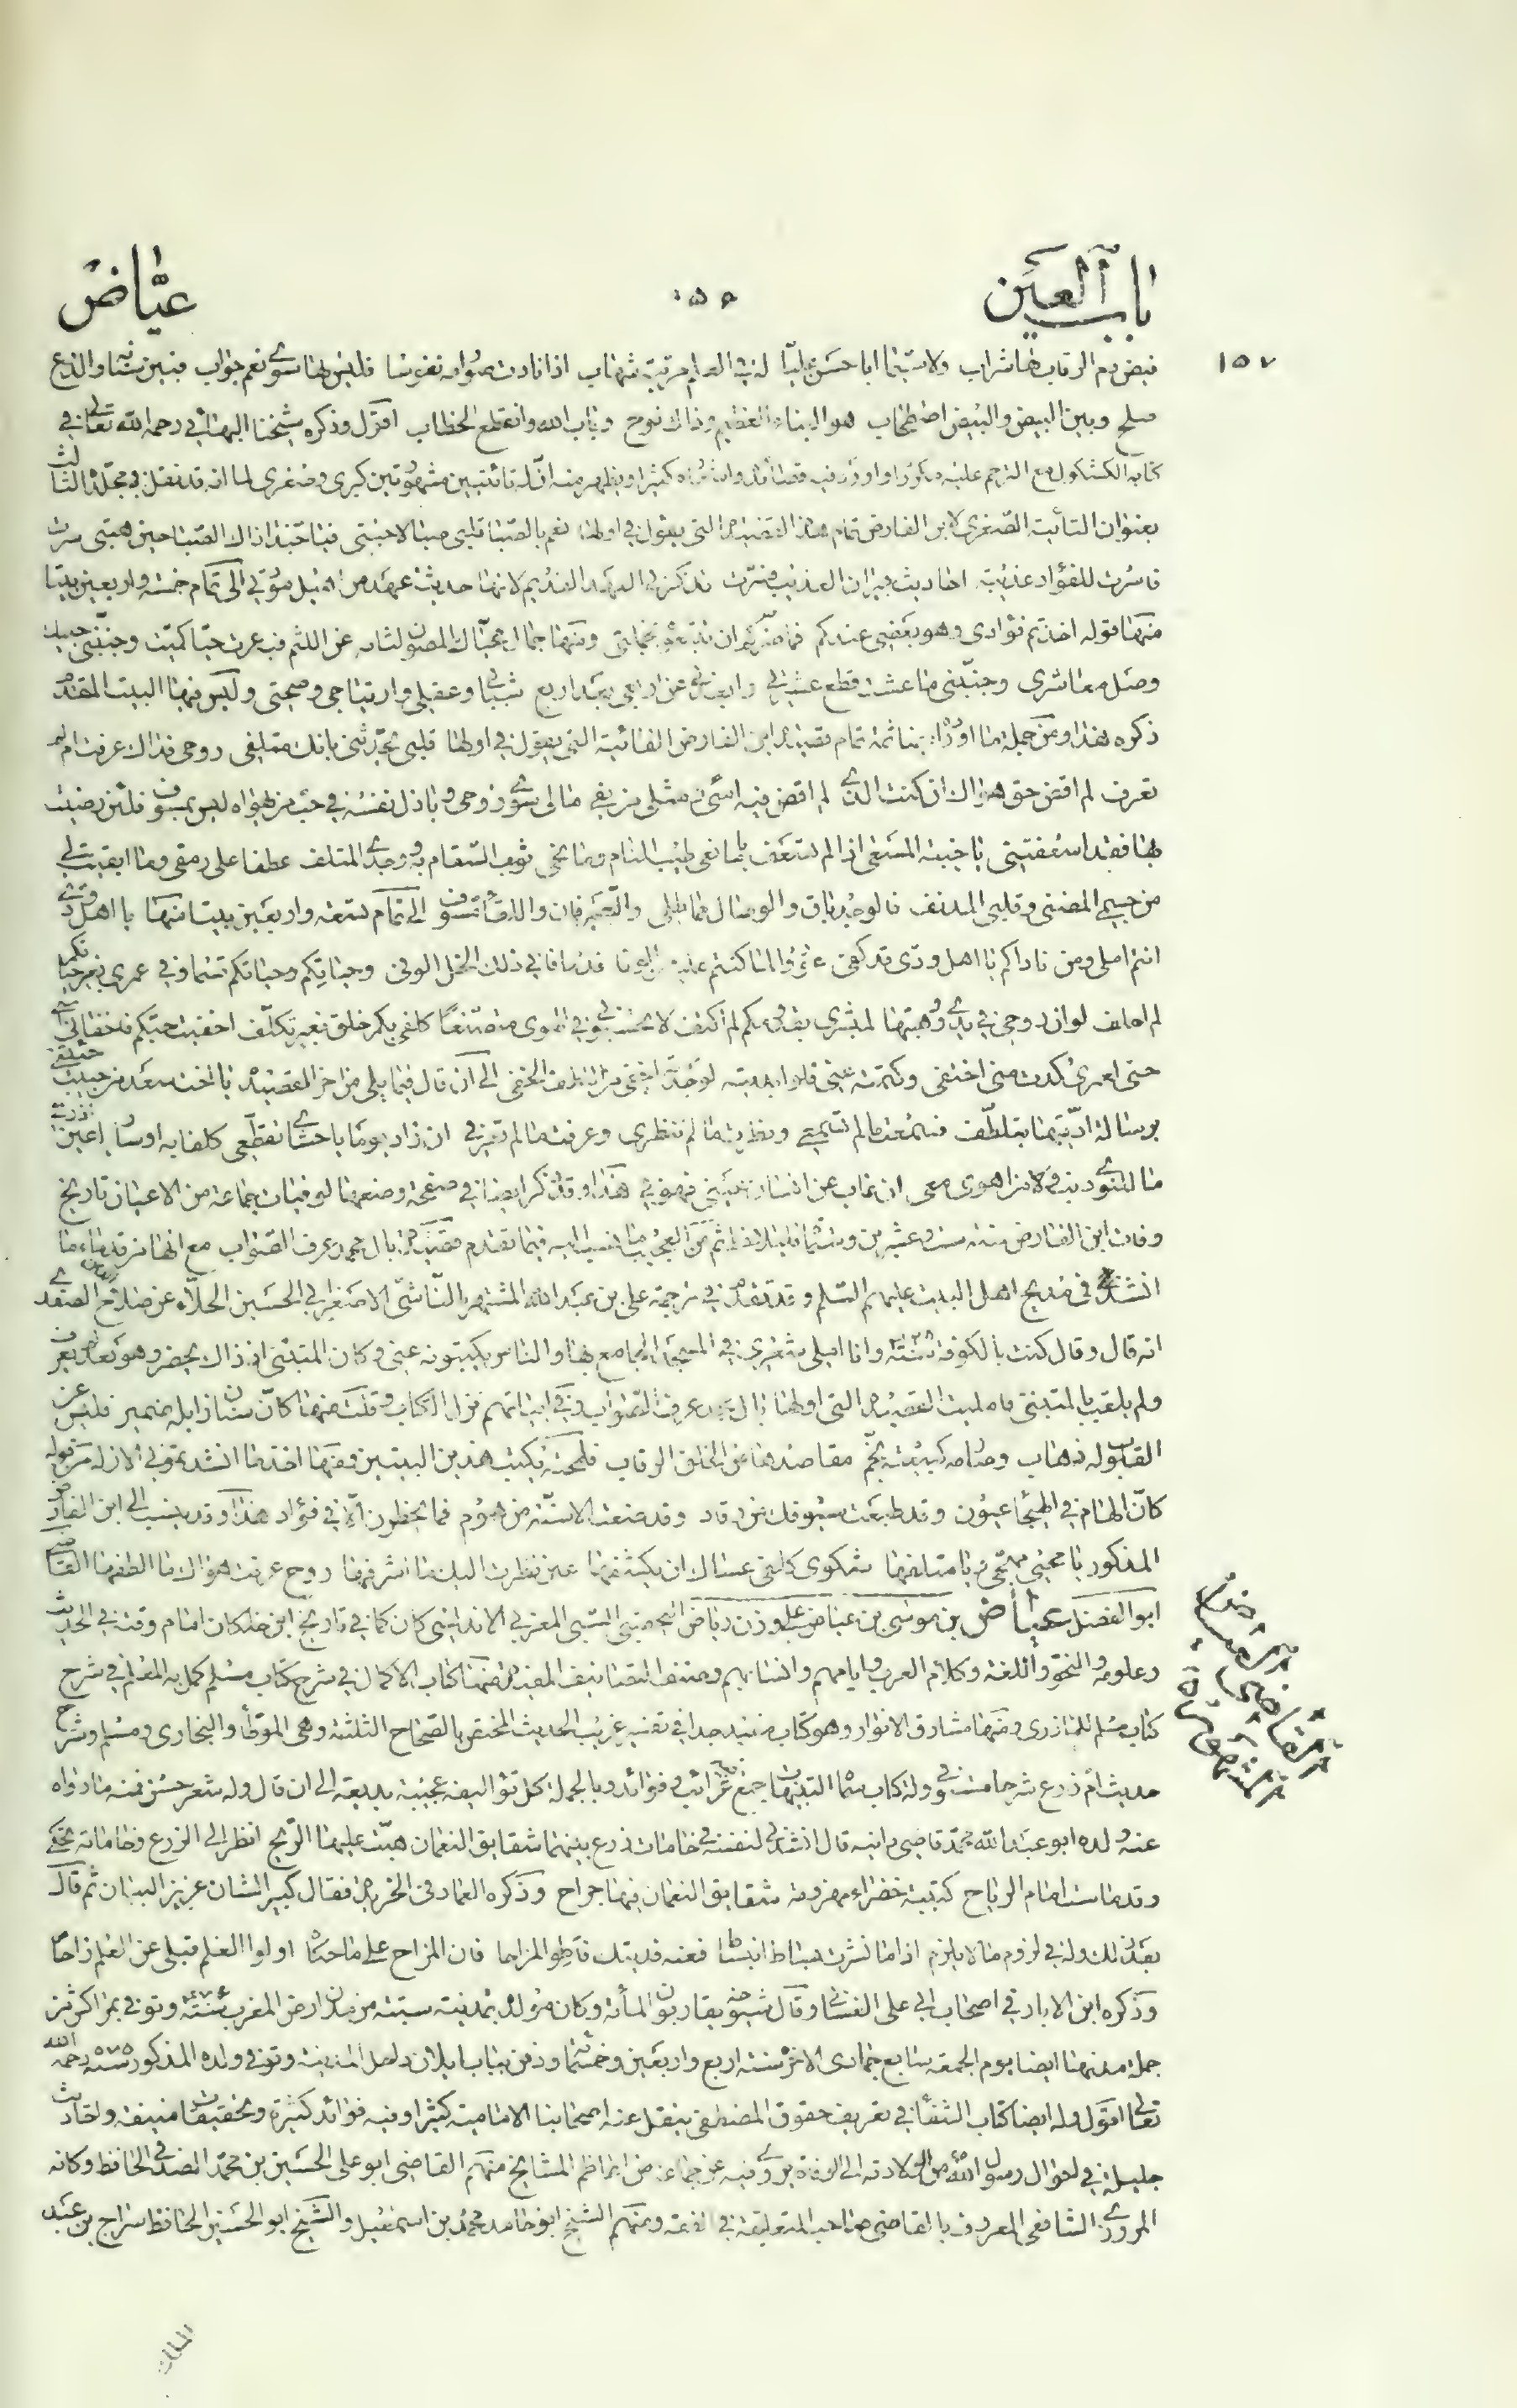 باب العين
٥٠٦
عياض
١٥٧
فبيض دم الرقاب لها شراب ولا سيما ابا حسن عليا له في العلم مرتبة تهاب اذا نادت صوارمه نفوسا فليس لها سوى نعم جواب فبين سنانه والدرع
صلح وبين البيض والبيض اصطحاب هو النباء العظيم وذاك نوح وباب الله وانقطع الخطاب اقول وذكره شيخنا البهائي رحمه الله تعالى في
كتابه الكشكول مع الترحم عليه مكررا واورد فيه قصائده واشعاره كثيرا ويظهر منه ان له تائيتين مشهورتين كبرى وصغرى لما انه قد نقل في مجلده الثالث
بعنوان التائية الصغرى لابن الفارض تمام هذه القصيدة التي يقول في اولها نعم بالصبا قلبي صبا لاحبتي فيا حبذا ذاك الصبا حين هبتي سرت
فاسرت للفؤاد غدية احاديث جيران العذيب فسرت تذكرني العهد القديم لانها حديثة عهد من اهيل مودتي الى تمام خمسة واربعين بيتا
منها قوله اخذتم فؤادي وهو بعضي عندكم فما ضركم ان تتبعوه بجملتي ومنها جمال محياك المصون لثامه عن اللثم فيه عدت حيا كميت وجنبني حبيك
وصل معاشري وجنبني ما عشت قطع عشيرتي وابعدني عن اربعي بعد اربع شبابي وعقلي وارتياحي وصحتي وليس فيها البيت المقدم
ذكره هذا ومن جملة ما اورده بتمامه تمام قصيدة ابن الفارض الفائية التي يقول في اولها قلبي يحدثني بانك متلفي روحي فداك عرفت ام لم
تعرف لم اقض حق هواك ان كنت الذي لم اقض فيه اسى ومثلي من يفي مالي سوى روحي وباذل نفسه في حب من يهواه ليس بمسرف فلئن رضيت
بها فقد اسعفتني يا خيبة المسعى اذا لم تسعف يا مانعي طيب المنام ومانحي ثوب السقام به ووجدي المتلف عطفا على رمقي وما ابقيت لي
من جسمي المضنى وقلبي المدنف فالوجد باق والوصال مماطلي والصبر فان واللقاء مسوفي الى تمام تسعة واربعين بيتا منها يا اهل ودي
انتم املي ومن ناداكم يا اهل ودي قد كفي عودوا لما كنتم عليه من الوفا فاني ذلك الخل الوفي وحياتكم وحياتكم قسما وفي عمري بغير حياتكم
لم احلف لو ان روحي في يدي ووهبتها لمبشري بقدومكم لم انصف لا تحسبوني في الهوى متصنعا كلفي بكم خلق بغير تكلف اخفيت حبكم فاخفاني اسى
حتى لعمري كدت عني اختفي وكتمته عني فلو ابديته لوجدته اخفى من اللطف الخفي الى ان قال فيما يلي من اخر القصيدة يا اخت سعد من حبيبي جئتني
برسالة اديتها بتلطف فسمعت ما لم تسمعي ونظرت ما لم تنظري وعرفت ما لم تعرفي ان زار يوما يا حشاي تقطعي كلفا به او سار يا عين اذرفي
ما للنوى ذنب ومن اهوى معي ان غاب عن انسان عيني فهو في هذا وقد ذكر ايضا في صفحة وضعها لوفيات جماعة من الاعيان تاريخ
وفات ابن الفارض سنة ست وعشرين وستمائة ثم من العجيب ما نسب اليه فيما تقدم قصيدة بال محمد عرف الصواب مع انها من قدماء ما
انشد في مديح اهل البيت عليهم السلم وقد تقدم في ترجمة علي بن عبد الله المشتهر بالناشي الاصغر ابي الحسين الحلاء عن صلاح الصفدي
انه قال وقال كنت بالكوفة سنة ٣٢٥ وانا املي شعري في المسجد الجامع بها والناس يكتبونه عني وكان المتنبي اذ ذاك يحضر وهو بعد لم يعرف
ولم يلقب بالمتنبي فامليت القصيدة التي اولها بال محمد عرف الصواب وفي ابياتهم نزل الكتاب وقلت منها كان سنان ذابله ضمير فليس عن
القلوب له ذهاب وصارمه كبيعته بخم مقاصدها عن الخلق الرقاب فلمحته يكتب هذين البيتين ومنها اخذ ما انشدتموني الان له من قوله
كان الهام في الهيجا عيون وقد طبعت سيوفك من رقاد وقد صغت الاسنة من هموم فما يخطرن الا في فؤاد هذا وقد ينسب الى ابن الفارض
المذكور يا محيي مهجتي ويا متلفها شكوى كلفي عساك ان تكشفها عين نظرت اليك ما اشرفها روح عرفت هواك ما الطفها القاضي
ابو الفضل عياض بن موسى بن عياض على وزن رياض اليحصبي السبتي المغربي الاندلسي كان كما في تاريخ ابن خلكان امام وقته في الحديث
وعلومه والنحو واللغة وكلام العرب وايامهم وانسابهم وصنف التصانيف المفيدة منها كتاب الاكمال في شرح كتاب مسلم كمل به المعلم في شرح
كتاب مسلم للمازري ومنها مشارق الانوار وهو كتاب مفيد جدا في تفسير غريب الحديث المختص بالصحاح الثلثة وهي الموطأ والبخاري ومسلم وشرح
حديث ام زرع شرحا مستوفى وله كتاب سماه التنبيهات جمع فيه غرائب وفوائد وبالجملة كل تواليفه عجيبة بديعة الى ان قال وله شعر حسن فمنه ما رواه
عنه ولده ابو عبد الله محمد قاضي دانيه قال انشدني لنفسه في خامات زرع بينهما شقايق النعمان هبت عليها الريح انظر الى الزرع وخاماته تحكي
وقد ماست امام الرياح كتيبة خضراء مهزومة شقايق النعمان فيها جراح وذكره العماد في الخريدة فقال كبير الشان عزيز البيان ثم قال
بعد ذلك وله في لزوم ما لا يلزم اذا ما نشرت بساط انبساط فعنه فديتك فاطو المزاحا فان المزاح على ما حكاه اولوا العلم قبلي عن العلم زاحا
وذكره ابن الابار في اصحاب ابي علي الغساني وقال شيوخه يقاربون المأة وكان مولده بمدينة سبتة من مدن ارض المغرب سنة ٤٧٦ وتوفي بمراكش ثز
جملة مدنها ايضا يوم الجمعة سابع جمادى الاخر سنة اربع واربعين وخمسمائة ودفن بباب ايلان داخل المدينة وتوفي ولده المذكور سنة ٥٧٥ رحمه الله
تعالى اقول وله ايضا كتاب الشفاء في تعريف حقوق المصطفى ينقل عنه اصحابنا الامامية كثيرا وفيه فوائد كثيرة وتحقيقات منيفة واحاديث
جليلة في احوال رسول الله من الولادة الى الوفاة يروي فيه عن جماعة من اعاظم المشايخ منهم القاضي ابو علي الحسين بن محمد الصدفي الحافظ وكانه
المروزي الشافعي المعروف بالقاضي صاحب التعليقة في الفقه ومنهم الشيخ ابو حامد محمد بن اسمعيل والشيخ ابو الحسين الحافظ سراج بن عبد
الملك